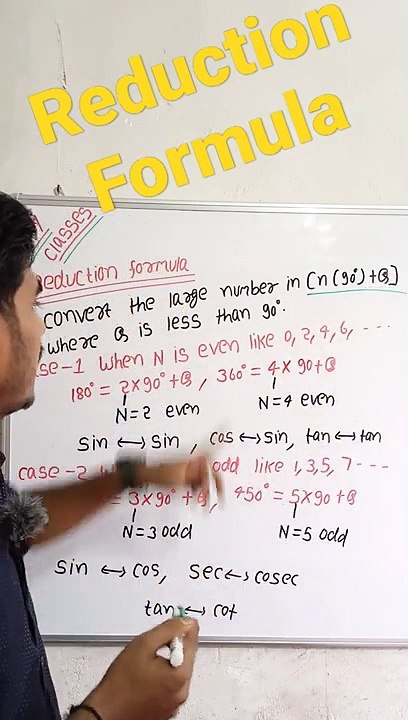 Reduction
Formula
classes
eduction formula
convert the large number in [n(90°)+θ]
where θ is less than 90°.
se-1 when N is even like 0, 2, 4, 6, ---
180° = 2×90°+θ, 360° = 4×90+θ
N=2 even N=4 even
Sin ↔ Sin, cos ↔ sin, tan ↔ tan
case-2 odd like 1,3,5, 7---
= 3×90°+θ, 450° = 5×90+θ
N=3 odd N=5 odd
Sin ↔ cos, Sec ↔ cosec
tan ↔ cot